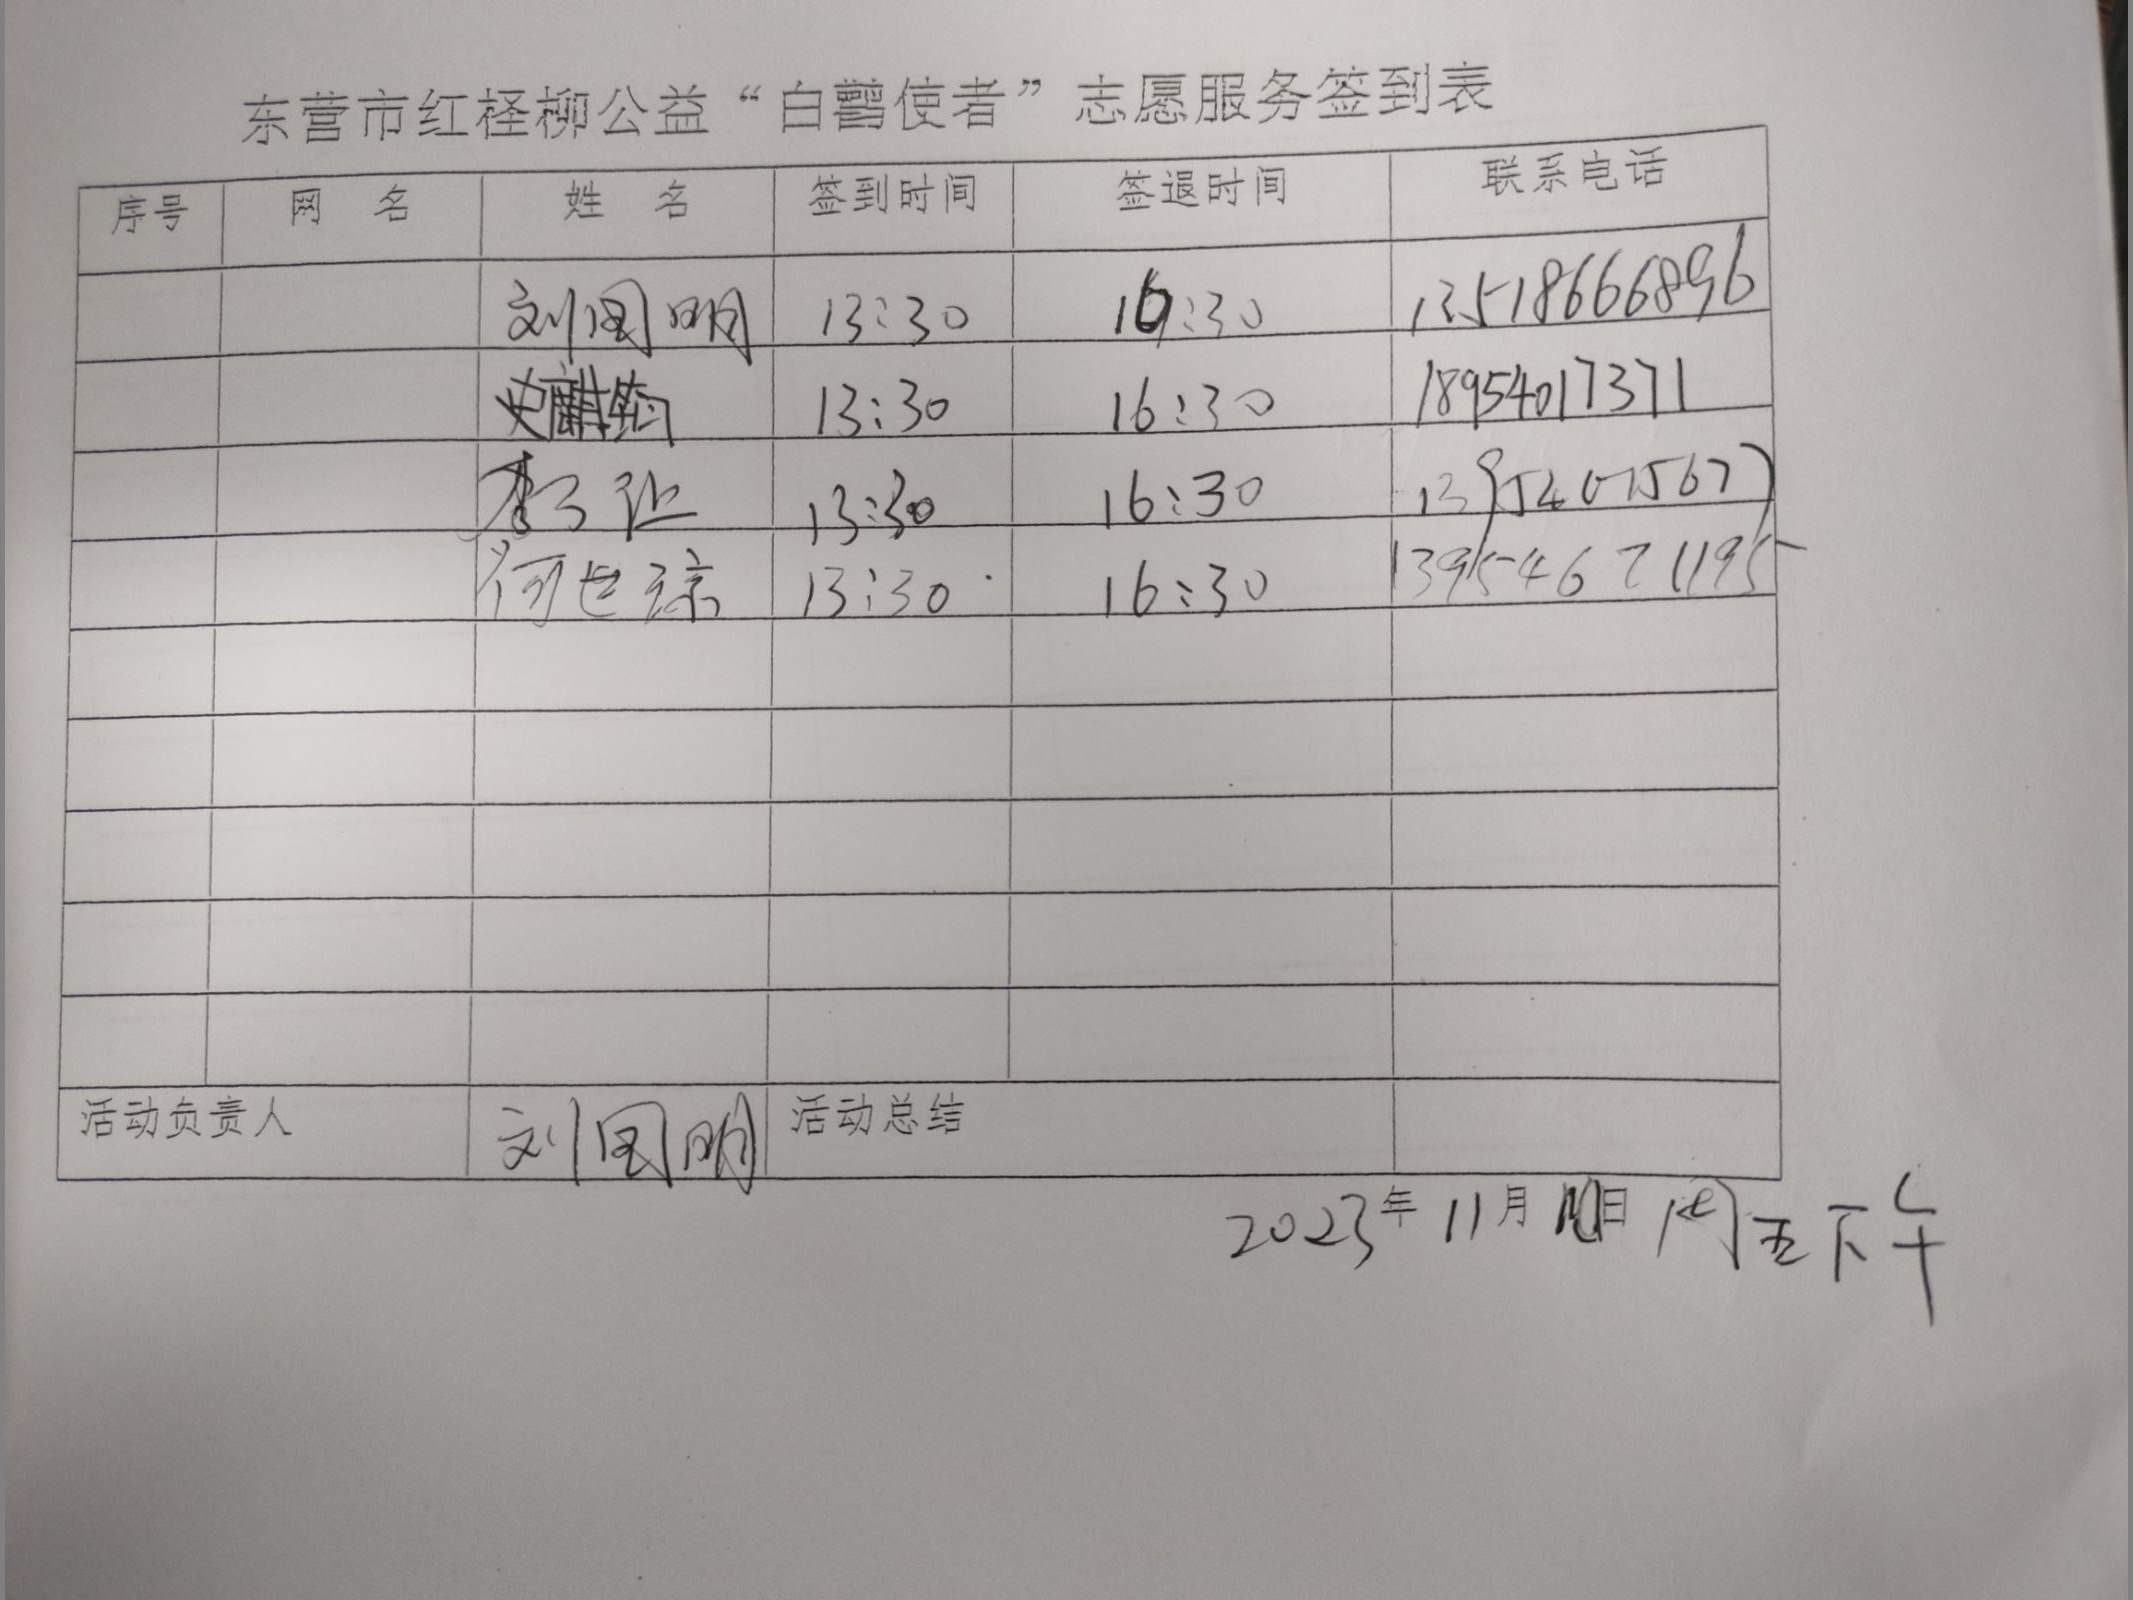 东营市红柽柳公益“白鹳使者”志愿服务签到表
序号 网 名 姓 名 签到时间 签退时间 联系电话
刘国明 13:30 16:30 13518666896
史麒筠 13:30 16:30 18954017371
13:30 16:30
何世琼 13:30 16:30 13954671195
活动负责人 刘国明 活动总结
2023年 11月 日 周五下午